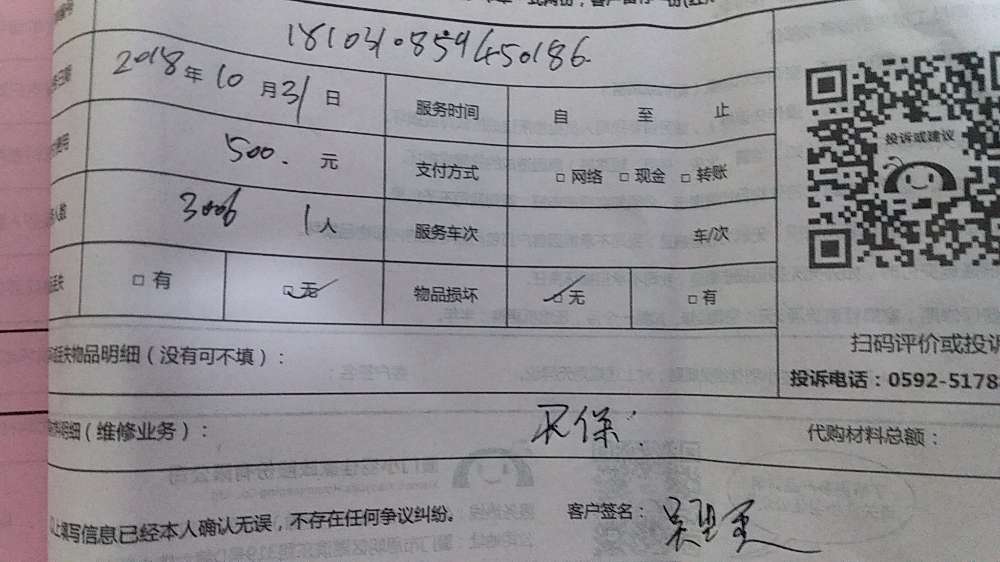 181031085945018​6
2018年10月31日 服务时间 自 至 止
500. 元 支付方式 □网络 □现金 □转账
1人 服务车次 车/次
□有 □无 物品损坏 □无 □有
投诉或建议
扫码评价或投诉
丢失物品明细（没有可不填）：
投诉电话：0592-5178
明细（维修业务）： 不保. 代购材料总额：
以上填写信息已经本人确认无误，不存在任何争议纠纷。 客户签名：